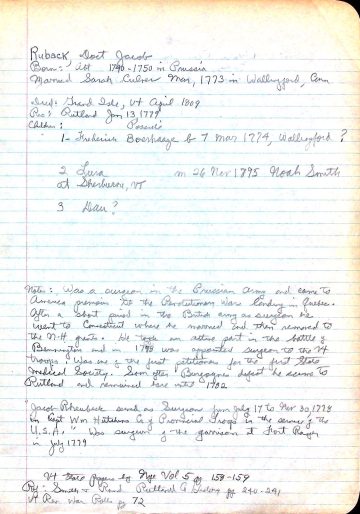 Ruback, Doct Jacob
Born: abt 1740-1750 in Prussia
Married Sarah Culver Mar, 1773 in Wallingford, Conn
Died: Grand Isle, Vt April 1809
Res: Rutland Jan 13, 1779
Children:
1- Frederick Boerhaage b 7 Mar 1774, Wallingford?
2 Lura m 26 Nov 1795 Noah Smith
at Sherburne, VT
3 Dau?
Notes: Was a surgeon in the Prussian Army and came to
America previous to the Revolutionary War landing in Quebec.
After a short period in the British army as surgeon he
went to Connecticut where he married and then removed to
the N.H. grants. He took an active part in the battle of
Bennington and in was appointed surgeon to the Vt
troops. Was one of the first petitioners for the first State
Medical Society. Soon after Burgoyne defeat he
Rutland and remained here until 1782
"Jacob served as Surgeon from July 17 to Nov 30, 1778
in Capt Wm Co of Provincial Troops in the service of the
U.S.A." Was surgeon of the garrison at Fort Ranger
in July 1779
Vt State papers by Nye Vol 5 pg 158-159
Ref: Smith & Rann Rutland Co History pg 240-241
Vt Rev War Rolls pg 72